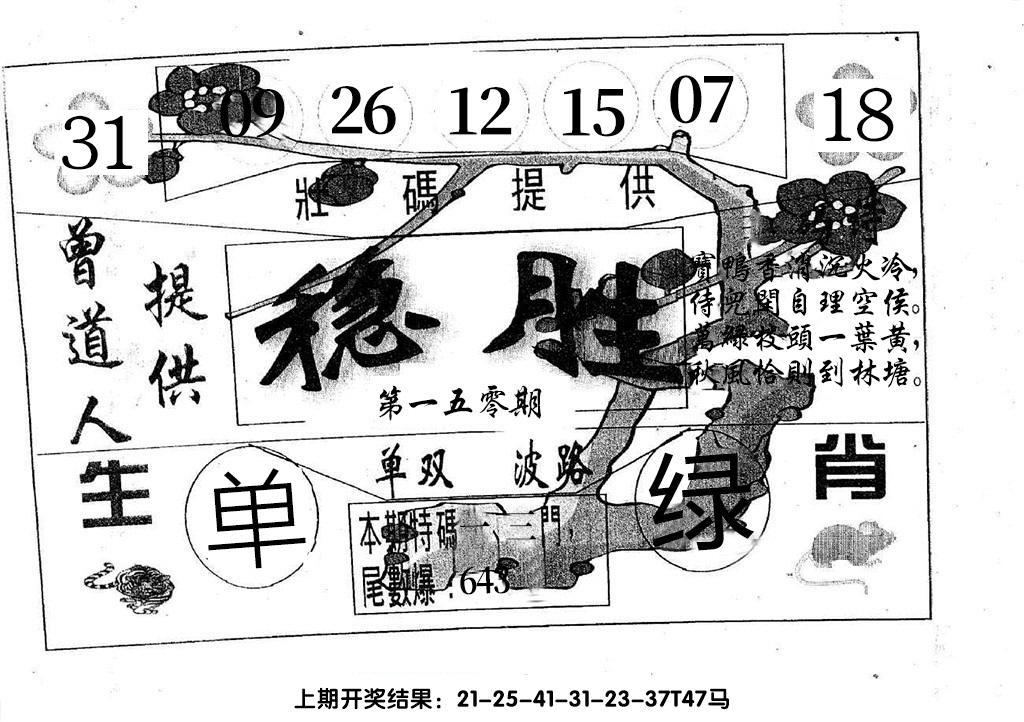 31 09 26 12 15 07 18
壯碼提供
特
曾道人
提供
稳胜
第一五零期
寶鴨香消沉火冷，
侍兒閑自理空侯。
萬綠枝頭一葉黄，
秋風恰則到林塘。
单双 波路
生肖
单
绿
本期特碼一、三門，
尾數爆：643
上期开奖结果：21-25-41-31-23-37T47马